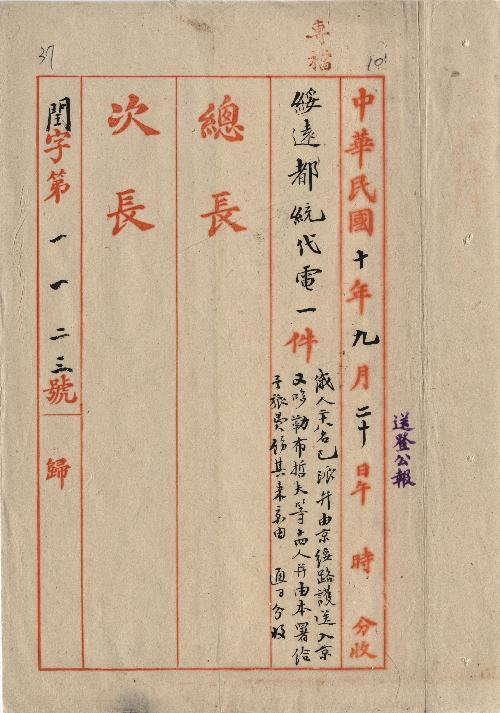 專檔
10
37
中華民國十年九月二十日午 時 分收
送登公報
綏遠都統代電一件
俄人 名已派 并由京綏路護送入京
又哆勒布哲夫等 人并由本署給
予旅費 其來京由
總長
次長
閏字第一一二三號 歸